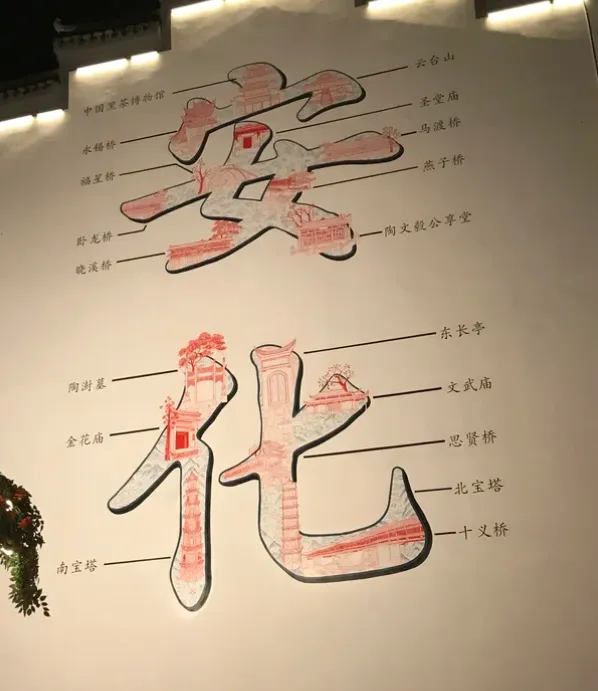 安
中国黑茶博物馆
云台山
圣堂庙
永锡桥
马渡桥
福星桥
燕子桥
卧龙桥
陶文毅公享堂
晓溪桥
化
东长亭
陶澍墓
文武庙
金花庙
思贤桥
北宝塔
十义桥
南宝塔